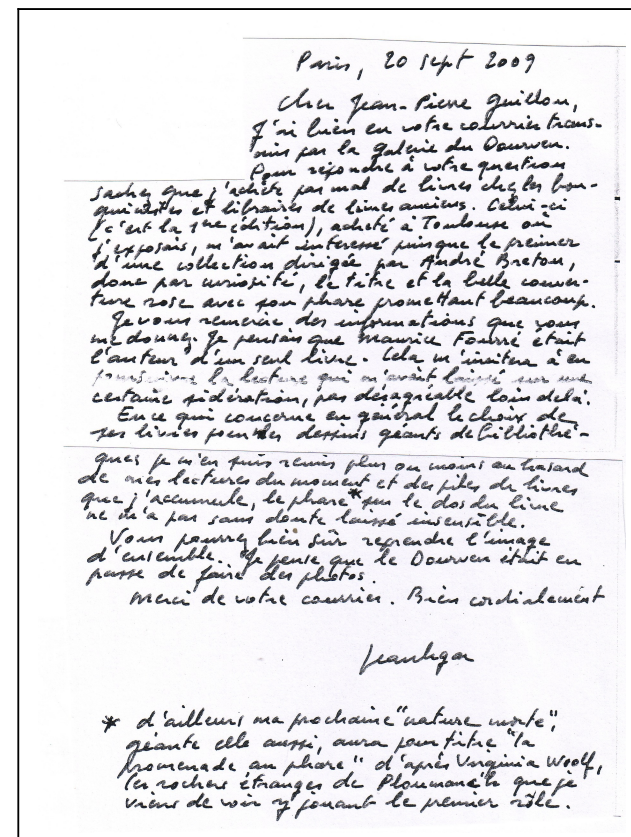 Paris, 20 sept 2009
Cher Jean-Pierre Guillou,
J'ai bien eu votre courrier trans-
mis par la galerie du Dourven.
Pour répondre à votre question
sachez que j'achète pas mal de livres chez les bou-
quinistes et libraires de livres anciens. Celui-ci
(c'est la 1ère édition), acheté à Toulouse où
j'exposais, m'avait intéressé puisque le premier
d'une collection dirigée par André Breton,
donc par curiosité, le titre et la belle couver-
ture rose avec son phare promettant beaucoup.
Je vous remercie des informations que vous
me donnez. Je pensais que Maurice Fourré était
l'auteur d'un seul livre. Cela m'incitera à en
poursuivre la lecture qui m'avait laissé sur une
certaine sidération, pas désagréable loin de là.
En ce qui concerne en général le choix de
ses livres pour les dessins géants de bibliothè-
ques je m'en suis remis plus ou moins au hasard
de mes lectures du moment et des piles de livres
que j'accumule, le phare* sur le dos du livre
ne m'a pas sans doute laissé insensible.
Vous pourrez bien sûr reprendre l'image
d'ensemble. Je pense que le Dourven était en
passe de faire des photos.
Merci de votre courrier. Bien cordialement
* d'ailleurs ma prochaine "nature morte",
géante elle aussi, aura pour titre "la
promenade au phare" d'après Virginia Woolf,
les rochers étranges de Ploumanac'h que je
viens de voir y jouant le premier rôle.